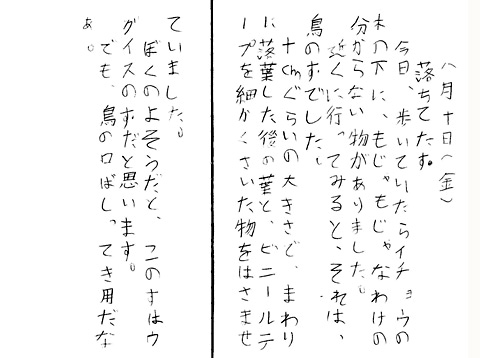 八月十日(金)
落ちてたす。
今日、歩いていたらイチョウの
木の下に、もじゃもじゃなわけの
分からない物がありました。
近くに行ってみると、それは、
鳥のすでした。
十cmぐらいの大きさで、まわり
に落葉した後の葉と、ビニールテ
ープを細かくさいた物をはさませ
ていました。
ぼくのよそうだと、このすはウ
グイスのすだと思います。
でも、鳥の口ばしってき用だな
ぁ。